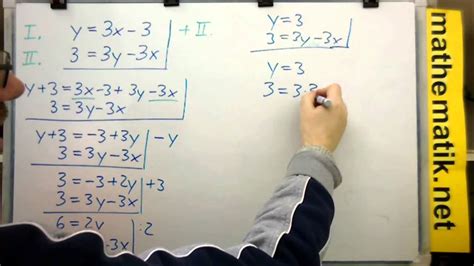 I. y = 3x - 3 | + II.
II. 3 = 3y - 3x
y + 3 = 3x - 3 + 3y - 3x
3 = 3y - 3x
y + 3 = -3 + 3y | -y
3 = 3y - 3x
3 = -3 + 2y | +3
3 = 3y - 3x
6 = 2y | :2
-3x
y = 3
3 = 3y - 3x
y = 3
3 = 3·
mathematik.net